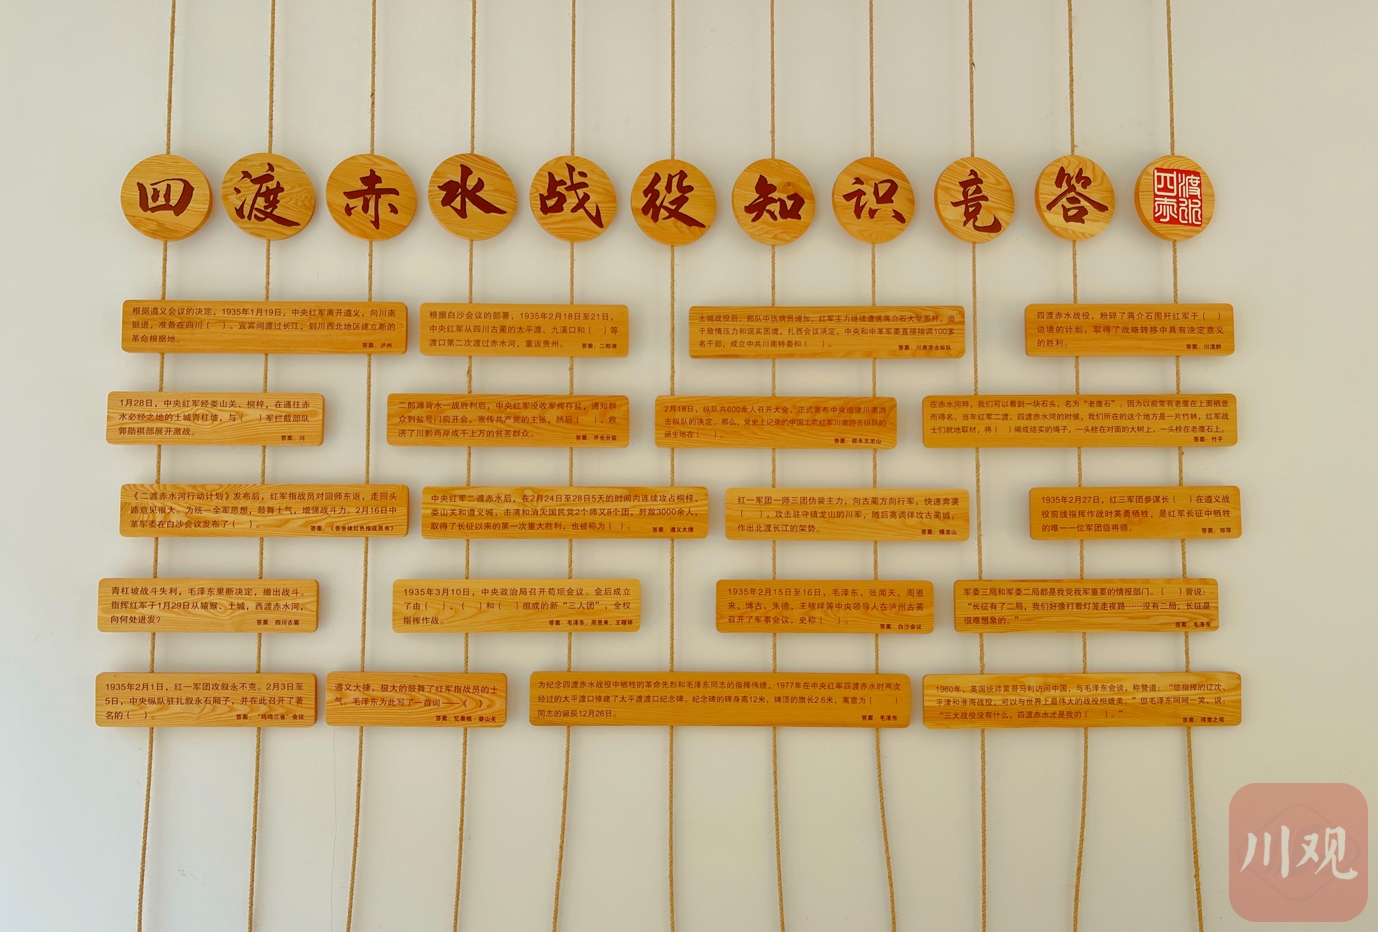 四渡赤水战役知识竞答
四渡赤水
根据遵义会议的决定，1935年1月19日，中央红军离开遵义，向川南
挺进，准备在四川（　）、宜宾间渡过长江，到川西北地区建立新的
革命根据地。
答案：泸州
根据白沙会议的部署，1935年2月18日至21日，
中央红军从四川古蔺的太平渡、九溪口和（　）等
渡口第二次渡过赤水河，重返贵州。
答案：二郎滩
土城战役后，部队中伤病员增加，红军主力继续遭遇蒋介石大军围歼。迫
于敌情压力和现实困境，扎西会议决定，中央和中革军委直接抽调100多
名干部，成立中共川南特委和（　）。
答案：川南游击纵队
四渡赤水战役，粉碎了蒋介石围歼红军于（　）
边境的计划，取得了战略转移中具有决定意义
的胜利。
答案：川滇黔
1月28日，中央红军经娄山关、桐梓，在通往赤
水必经之地的土城青杠坡，与（　）军拦截部队
郭勋祺部展开激战。
答案：川
二郎滩背水一战胜利后，中央红军没收军阀存盐，通知群
众到盐号门前开会，宣传共产党的主张，然后（　），救
济了川黔两岸成千上万的贫苦群众。
答案：开仓分盐
2月18日，纵队共600余人召开大会，正式宣布中央组建川南游
击纵队的决定。那么，党史上记录的中国工农红军川南游击纵队的
诞生地在（　）。
答案：叙永五龙山
在赤水河畔，我们可以看到一块石头，名为“老鹰石”，因为以前常有老鹰在上面栖息
而得名，当年红军二渡，四渡赤水河的时候，我们所在的这个地方是一片竹林，红军战
士们就地取材，将（　）编成结实的绳子，一头栓在对面的大树上，一头栓在老鹰石上。
答案：竹子
《二渡赤水河行动计划》发布后，红军指战员对回师东返，走回头
路意见很大。为统一全军思想，鼓舞士气，增强战斗力。2月16日中
革军委在白沙会议发布了（　）。
答案：《告全体红色指战员书》
中央红军二渡赤水后，在2月24日至28日5天的时间内连续攻占桐梓，
娄山关和遵义城，击溃和消灭国民党2个师又8个团，歼敌3000余人，
取得了长征以来的第一次重大胜利，也被称为（　）。
答案：遵义大捷
红一军团一师三团伪装主力，向古蔺方向行军，快速奔袭
（　），攻击驻守镇龙山的川军，随后高调佯攻古蔺城，
作出北渡长江的架势。
答案：镇龙山
1935年2月27日，红三军团参谋长（　）在遵义战
役前线指挥作战时英勇牺牲，是红军长征中牺牲
的唯一一位军团级将领。
答案：邓萍
青杠坡战斗失利，毛泽东果断决定，撤出战斗。
指挥红军于1月29日从猿猴、土城，西渡赤水河，
向何处进发？
答案：四川古蔺
1935年3月10日，中央政治局召开苟坝会议。会后成立
了由（　）、（　）和（　）组成的新“三人团”，全权
指挥作战。
答案：毛泽东、周恩来、王稼祥
1935年2月15日至16日，毛泽东、张闻天、周恩
来、博古、朱德、王稼祥等中央领导人在泸州古蔺
召开了军事会议，史称（　）。
答案：白沙会议
军委三局和军委二局都是我党我军重要的情报部门。（　）曾说：
“长征有了二局，我们好像打着灯笼走夜路——没有二局，长征是
很难想象的。”
答案：毛泽东
1935年2月1日，红一军团攻叙永不克。2月3日至
5日，中央纵队驻扎叙永石厢子，并在此召开了著
名的（　）。
答案：“鸡鸣三省”会议
遵义大捷，极大的鼓舞了红军指战员的士
气。毛泽东为此写了一首词——
答案：忆秦娥·娄山关
为纪念四渡赤水战役中牺牲的革命先烈和毛泽东同志的指挥伟绩，1977年在中央红军四渡赤水时两次
经过的太平渡口修建了太平渡渡口纪念碑。纪念碑的碑身高12米，碑顶的旗长2.6米，寓意为（　）
同志的诞辰12月26日。
答案：毛泽东
1960年，英国统帅蒙哥马利访问中国，与毛泽东会谈，称赞道：“您指挥的辽沈，
平津和淮海战役，可以与世界上最伟大的战役相媲美。”但毛泽东呵呵一笑，说：
“三大战役没有什么，四渡赤水才是我的（　）。”
答案：得意之笔
川观